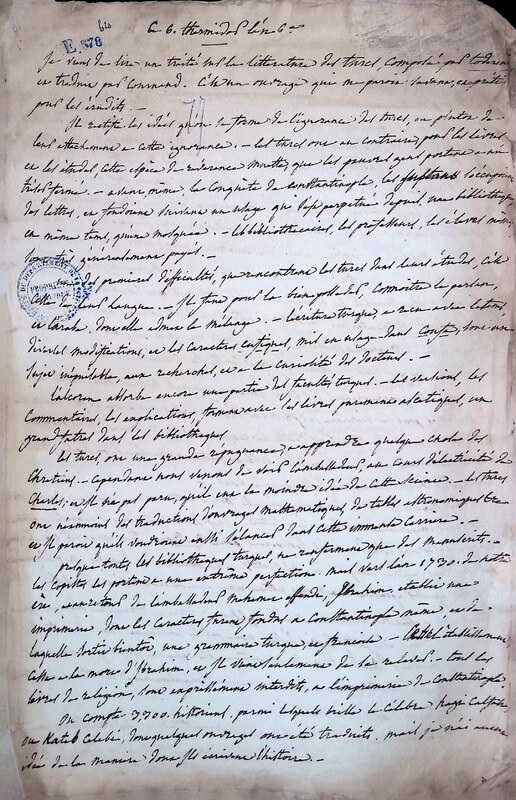 bis
E. 378
Ce 6. thermidor l'an 6e
je viens de lire un traité sur la littérature des turcs, composé par toderini
et traduit par Cournand. C'est un ouvrage qui me paroit savant, et prêté
pour les érudits. —
Il rectifie les idées qu'on se forme de l'ignorance des turcs, ou plutôt de
leur attachement à cette ignorance. — les turcs ont au contraire, pour les livres
et les études, cette espèce de révérence muette, que les pauvres gens portent à un
très fermé. — avant même, la Conquête de Constantinople, les sultans s'occupoient
des lettres, et fondèrent suivant un usage qui s'est perpétué depuis, une bibliothèque
en même tems, qu'une mosquée. — les bibliothécaires, les professeurs, les élèves même,
sont très généreusement payés. —
des premières difficultés, que rencontrent les turcs dans leurs études, c'est
celle de leur langue. — Il faut pour la bien posséder, connoitre le persan,
et l'arabe, dont elle admet le mélange. — l'écriture turque, a reçu avec le tems,
diverses modifications, et les caractères cufiques, mis en usage dans Coufa, sont un
sujet inépuisable, aux recherches, et à la curiosité des docteurs. —
l'alcoran absorbe encore une partie des facultés turques. — les versions, les
Commentaires, les explications, forment avec les livres purement ascétiques, un
grand fatras dans les bibliothèques.
les turcs, ont une grande répugnance, à apprendre quelque chose des
Chrétiens. — Cependant nous venons de voir l'ambassadeur, au cours d'électricité de
Charles; et il n'a pas paru, qu'il eut la moindre idée de cette science. — les turcs
ont néanmoins des traductions d'ouvrages mathématiques, de tables astronomiques &c
et il paroit qu'ils voudroient aussi s'élancer dans cette immense carrière. —
presque toutes les bibliothèques turques, ne renferment que des manuscrits. —
les Copistes les portent à une extrême perfection. mais vers l'an 1730. de notre
ère, au retour de l'ambassadeur Mehemet effendi, Ibrahim, établit une
imprimerie, dont les caractères furent fondus à Constantinople même, et de
laquelle sortit bientot, une grammaire turque, et françoise — cet établissement
cessa à la mort d'Ibrahim, et il vient seulement de se relever. — tous les
livres de religion, sont expressément interdits, à l'imprimerie de Constantinople
On compte 3,700. historiens, parmi lesquels brille le célèbre hagi Calfah
ou Kateb Celebi, dont quelques ouvrages ont été traduits. mais je n'ai aucune
idée de la manière dont ils écrivent l'histoire. —